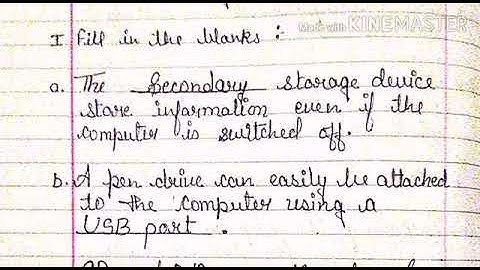 Made with KINEMASTER
I Fill in the blanks :-
a. The Secondary storage device
store information even if the
computer is switched off.
b. A pen drive can easily be attached
to the computer using a
USB port.